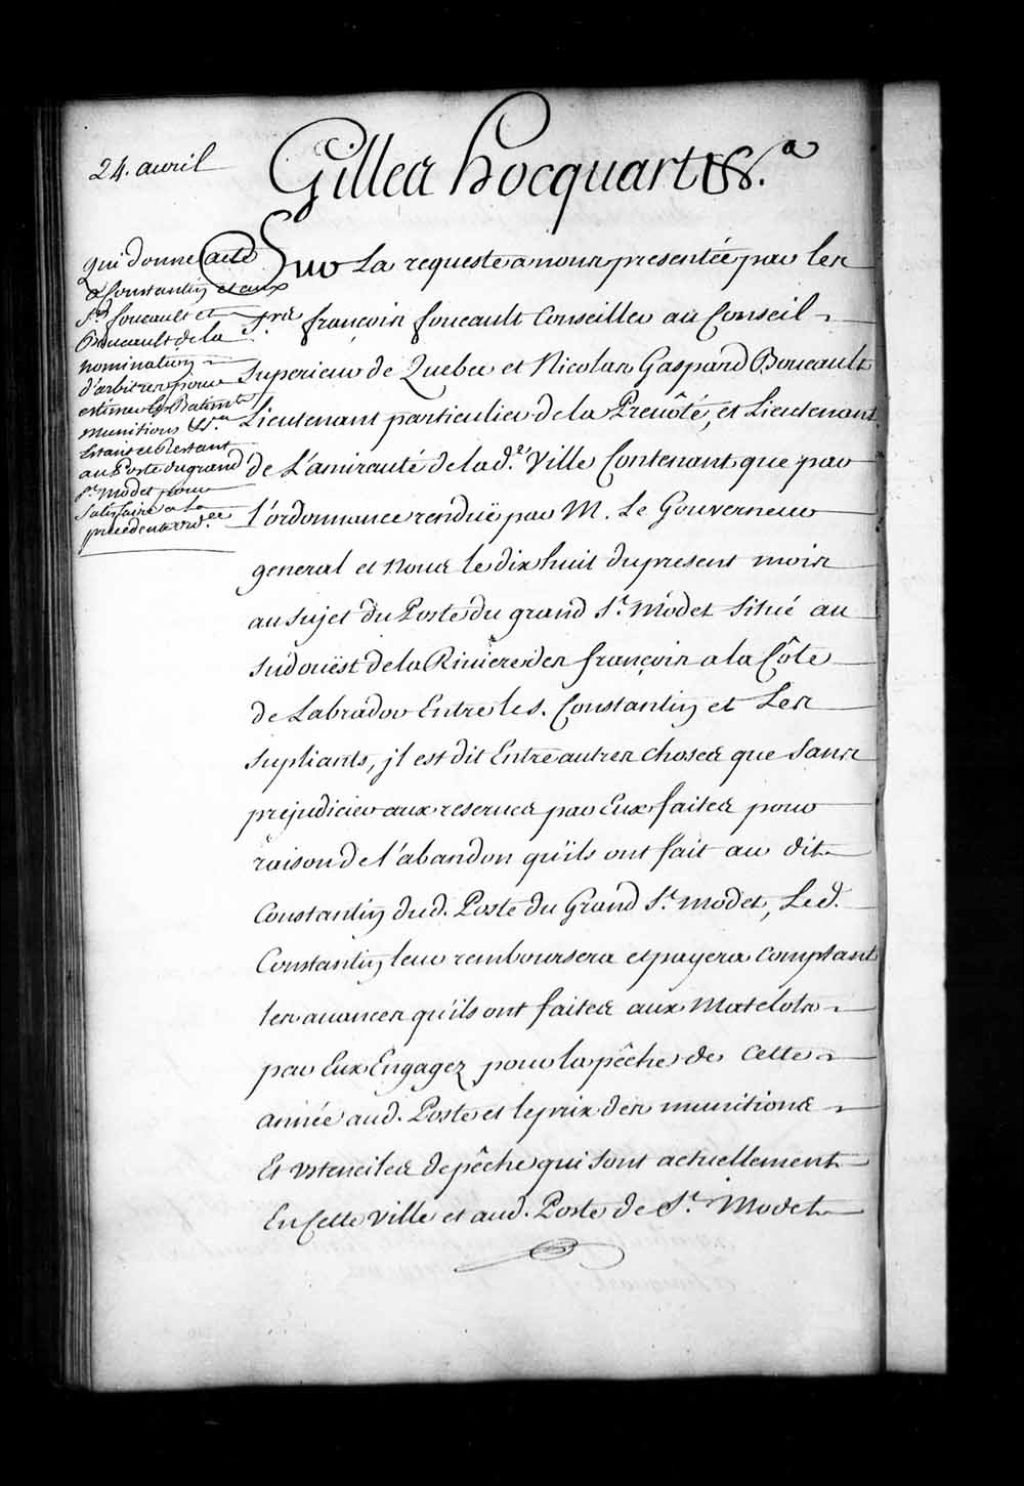 24. avril
Gilles hocquart &c.a
qui donne acte
a Constantin et aux
Srs foucault et
Boucault de la
nomination
d'arbitres pour
estimer les Batimts
munitions &c.a
Estant et Restant
au Poste du grand
St. modet pour
satisfaire a la
precedente ord.ce
Sur La requeste a nous presentée par les
Srs. françois foucault Conseiller au Conseil
Superieur de Quebec et Nicolas Gaspard Boucault
Lieutenant particulier de la Prevôté, et Lieutenant
de L'amirauté de lad.e Ville Contenant que par
l'ordonnance renduë par M. Le Gouverneur
general et Nous le dix huit du present mois
au sujet du Poste du grand St. Modet Situé au
Sudouëst de la Riviere des françois a la Côte
de Labrador Entre le s. Constantin et Les
supliants, jl est dit Entre autres choses que sans
prejudicier aux reserves par Eux faites pour
raison de l'abandon qu'ils ont fait au dit
Constantin dud. Poste du Grand St. modet, Led.
Constantin leur remboursera et payera comptant
les avances qu'ils ont faites aux Matelots
par Eux Engagez pour la pêche de cette
année aud. Poste et le prix des munitions
Et Ustenciles de pêche qui sont actuellement
En Cette Ville et aud. Poste de St. Modet